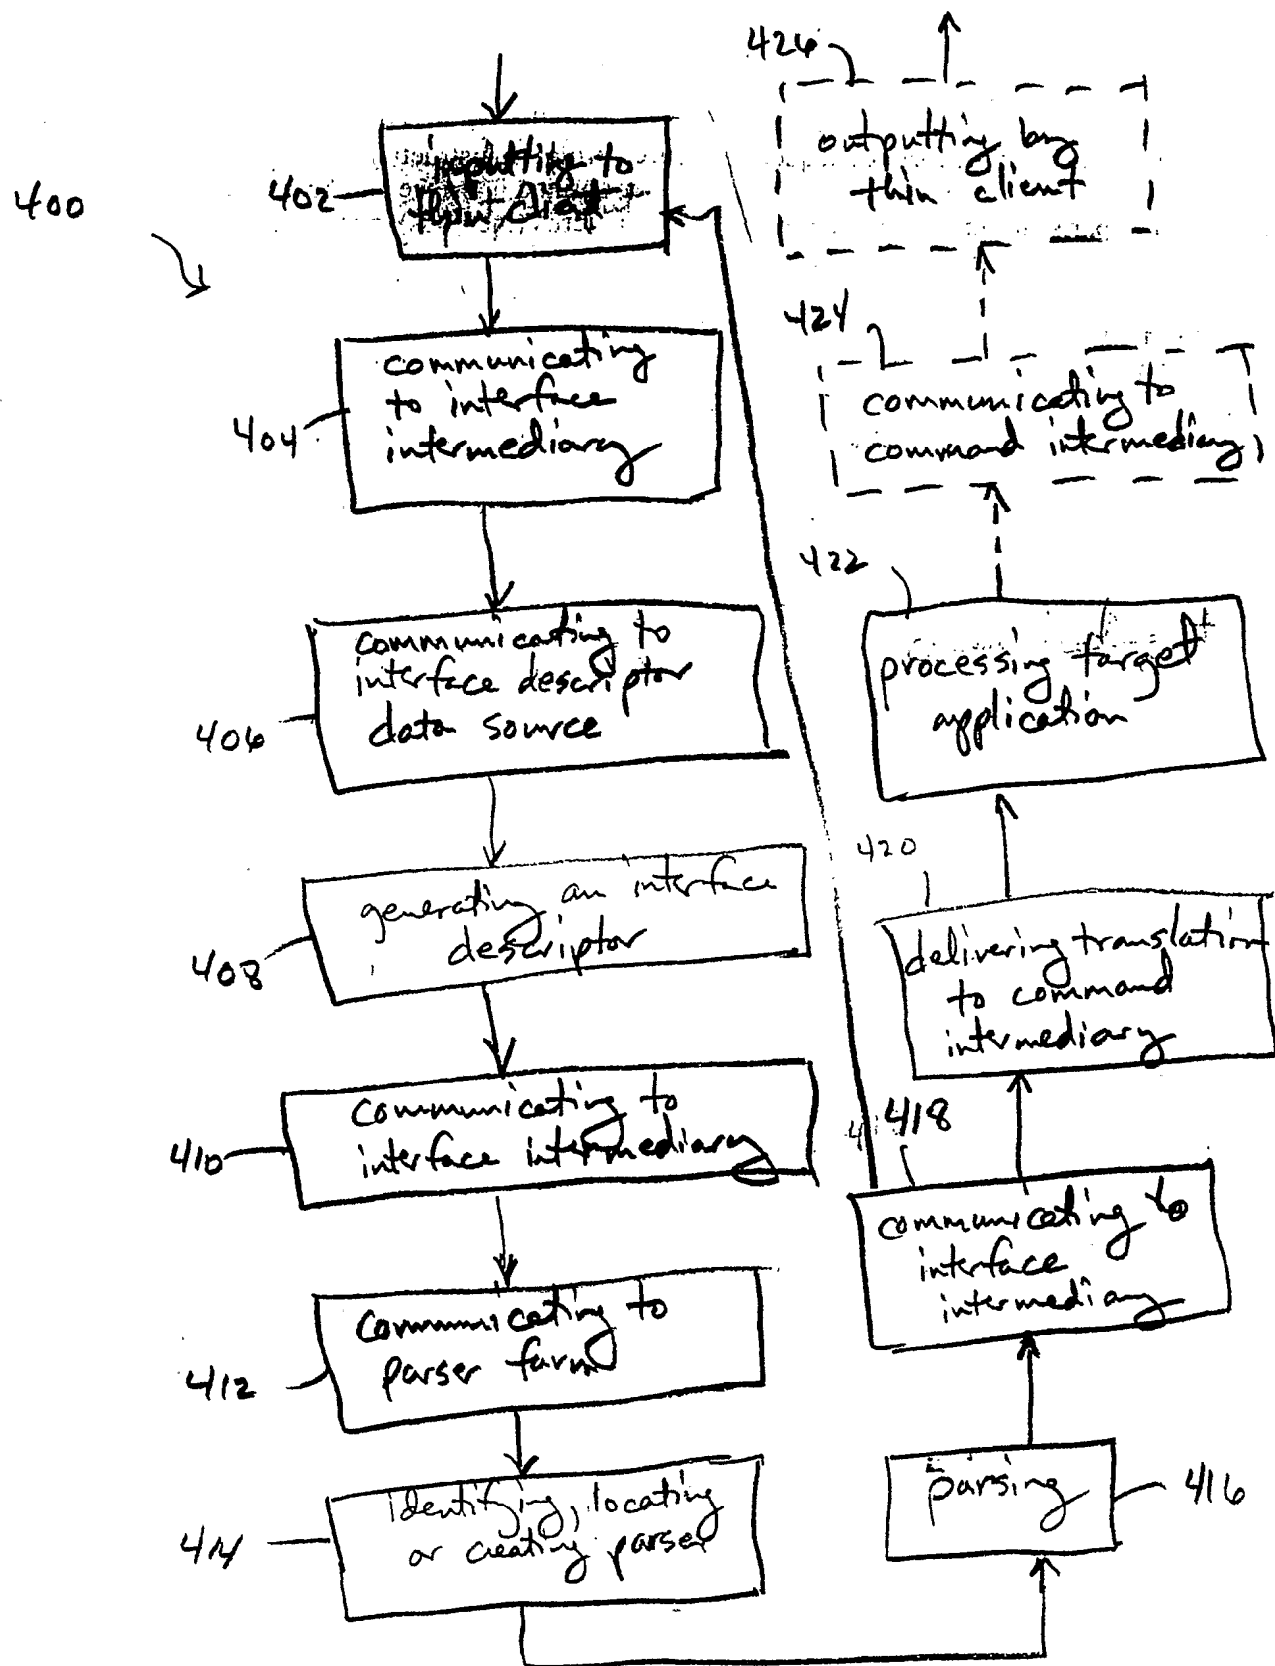 400
402
inputting to
thin client
404
communicating
to interface
intermediary
406
communicating to
interface descriptor
data source
408
generating an interface
descriptor
410
communicating to
interface intermediary
412
communicating to
parser farm
414
identifying, locating
or creating parser
parsing
416
418
communicating to
interface
intermediary
420
delivering translation
to command
intermediary
422
processing target
application
424
communicating to
command intermediary
426
outputting by
thin client